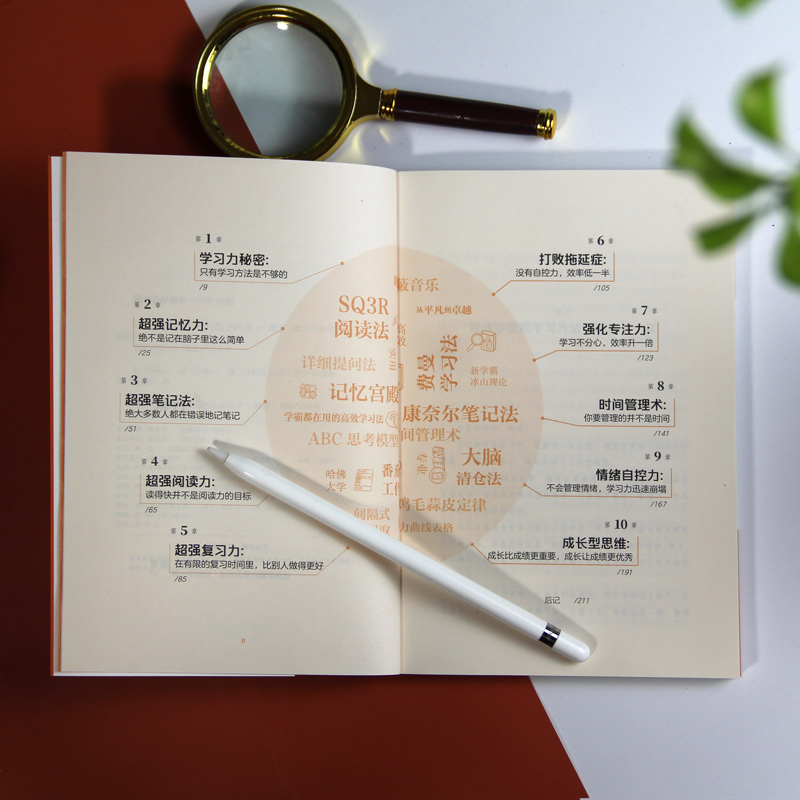 第 1 章
学习力秘密:
只有学习方法是不够的
/9
第 2 章
超强记忆力:
绝不是记在脑子里这么简单
/25
第 3 章
超强笔记法:
绝大多数人都在错误地记笔记
/51
第 4 章
超强阅读力:
读得快并不是阅读力的目标
/65
第 5 章
超强复习力:
在有限的复习时间里，比别人做得更好
/85
SQ3R
阅读法
详细提问法
记忆宫殿
学霸都在用的高效学习法
ABC 思考模型
哈佛
大学
间隔式
音乐
从平凡到卓越
费曼
学习法
新学霸
冰山理论
康奈尔笔记法
间管理术
大脑
清仓法
鸡毛蒜皮定律
力曲线表格
第 6 章
打败拖延症:
没有自控力，效率低一半
/105
第 7 章
强化专注力:
学习不分心，效率升一倍
/123
第 8 章
时间管理术:
你要管理的并不是时间
/141
第 9 章
情绪自控力:
不会管理情绪，学习力迅速崩塌
/167
第 10 章
成长型思维:
成长比成绩更重要，成长让成绩更优秀
/191
后记 /211
II